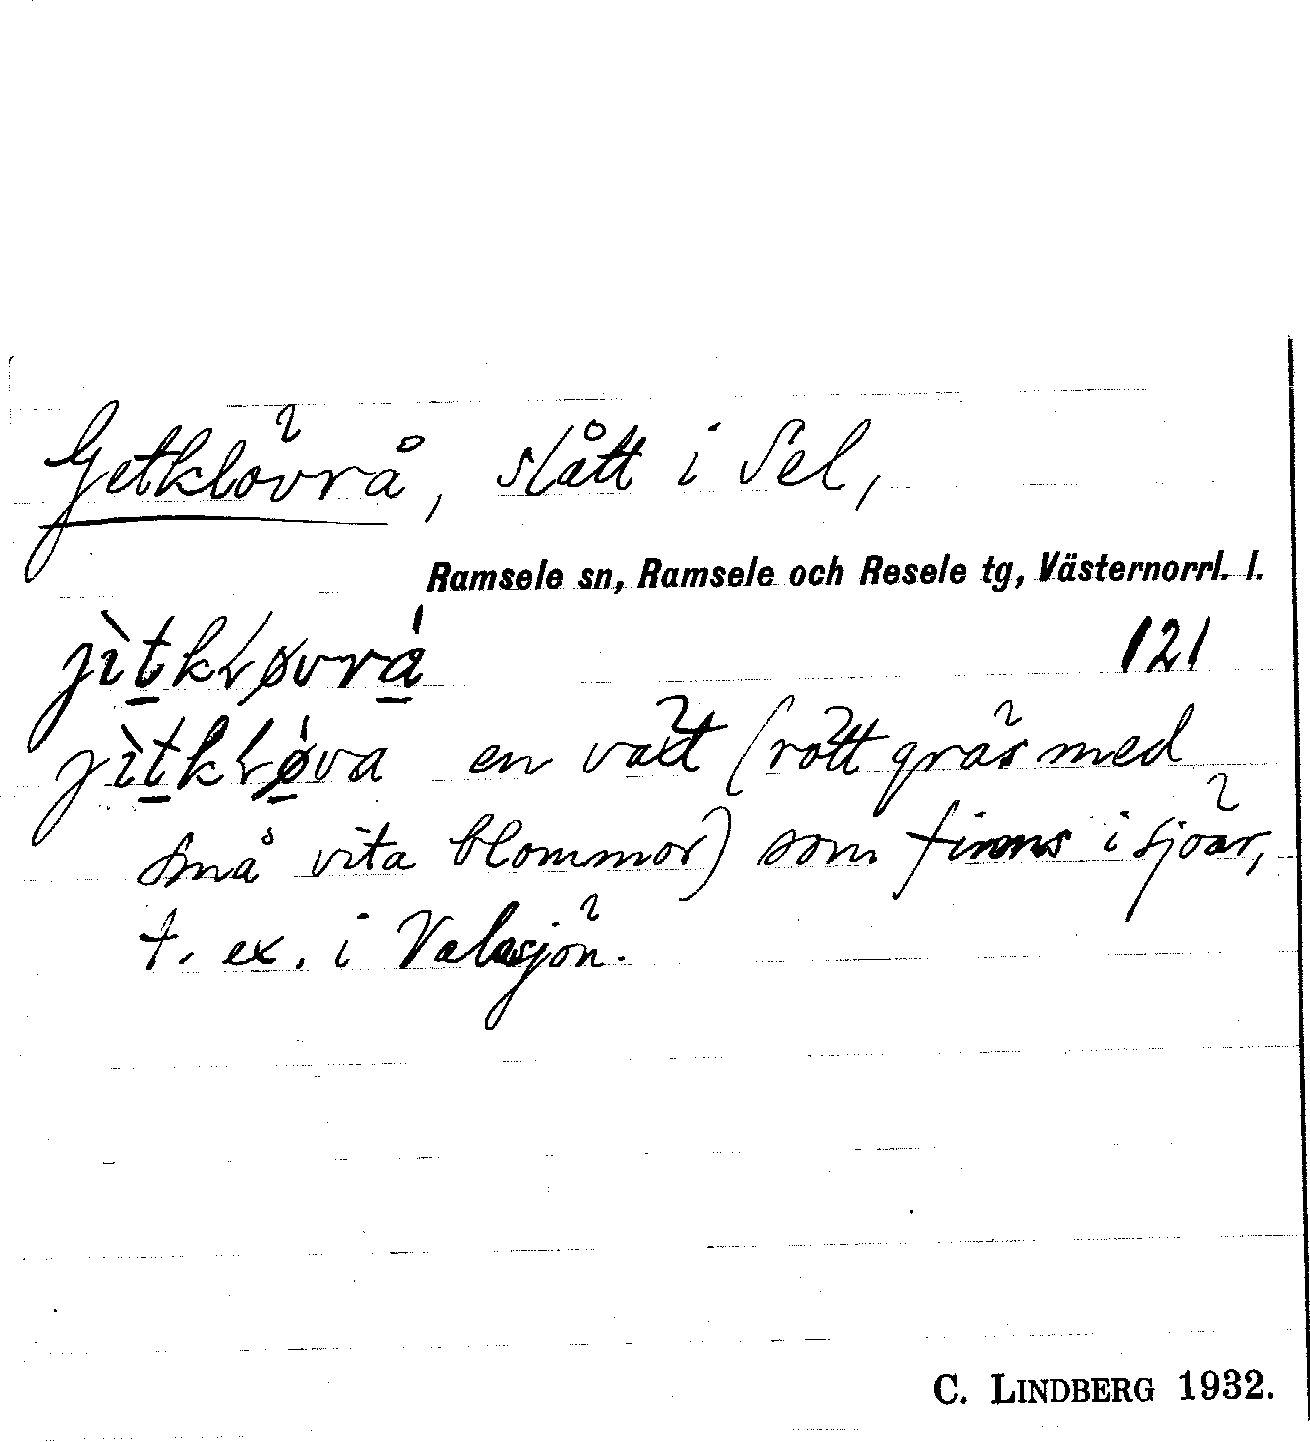 Getklövrå, slått i Sel,
Ramsele sn, Ramsele och Resele tg, Västernorrl. l.
jìt̲kLøvrá̲
121
jìt̲kLǿ̲va en växt (rött gräs med
små vita blommor) som finns i sjöar,
t. ex. i Valasjön.
C. LINDBERG 1932.